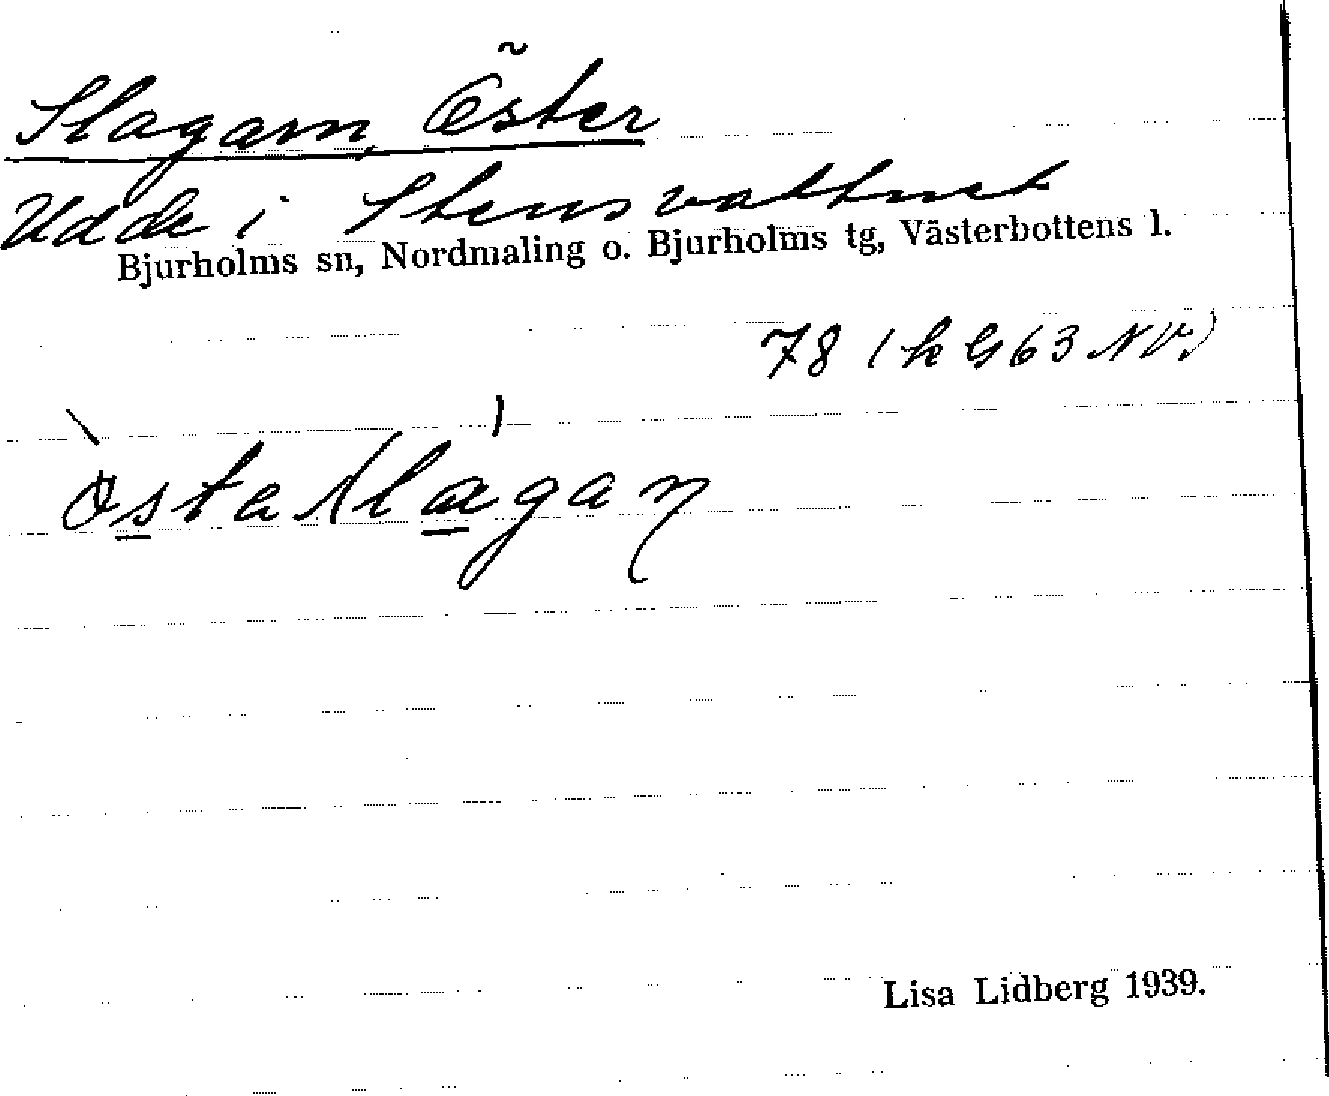 Slagarn, Öster
Udde i Stensvattnet
Bjurholms sn, Nordmaling o. Bjurholms tg, Västerbottens l.
78 (k G 63 NV.)
Lisa Lidberg 1939.